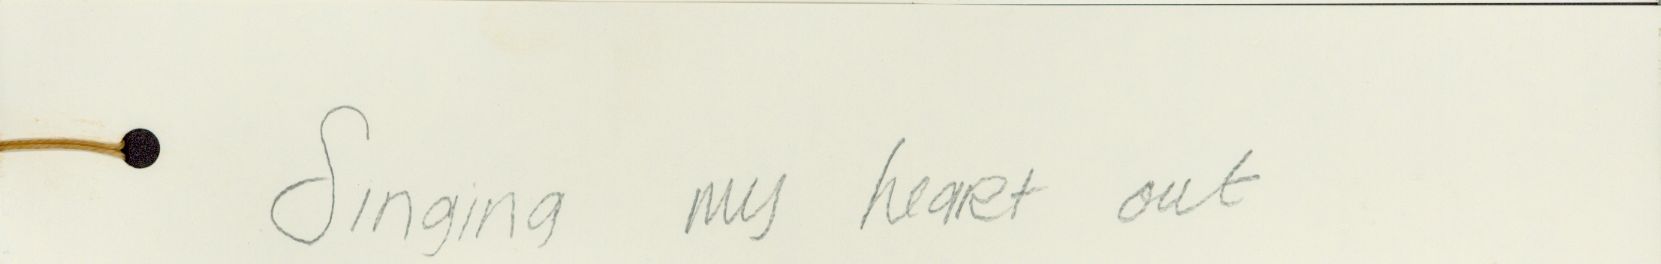 Singing my heart out